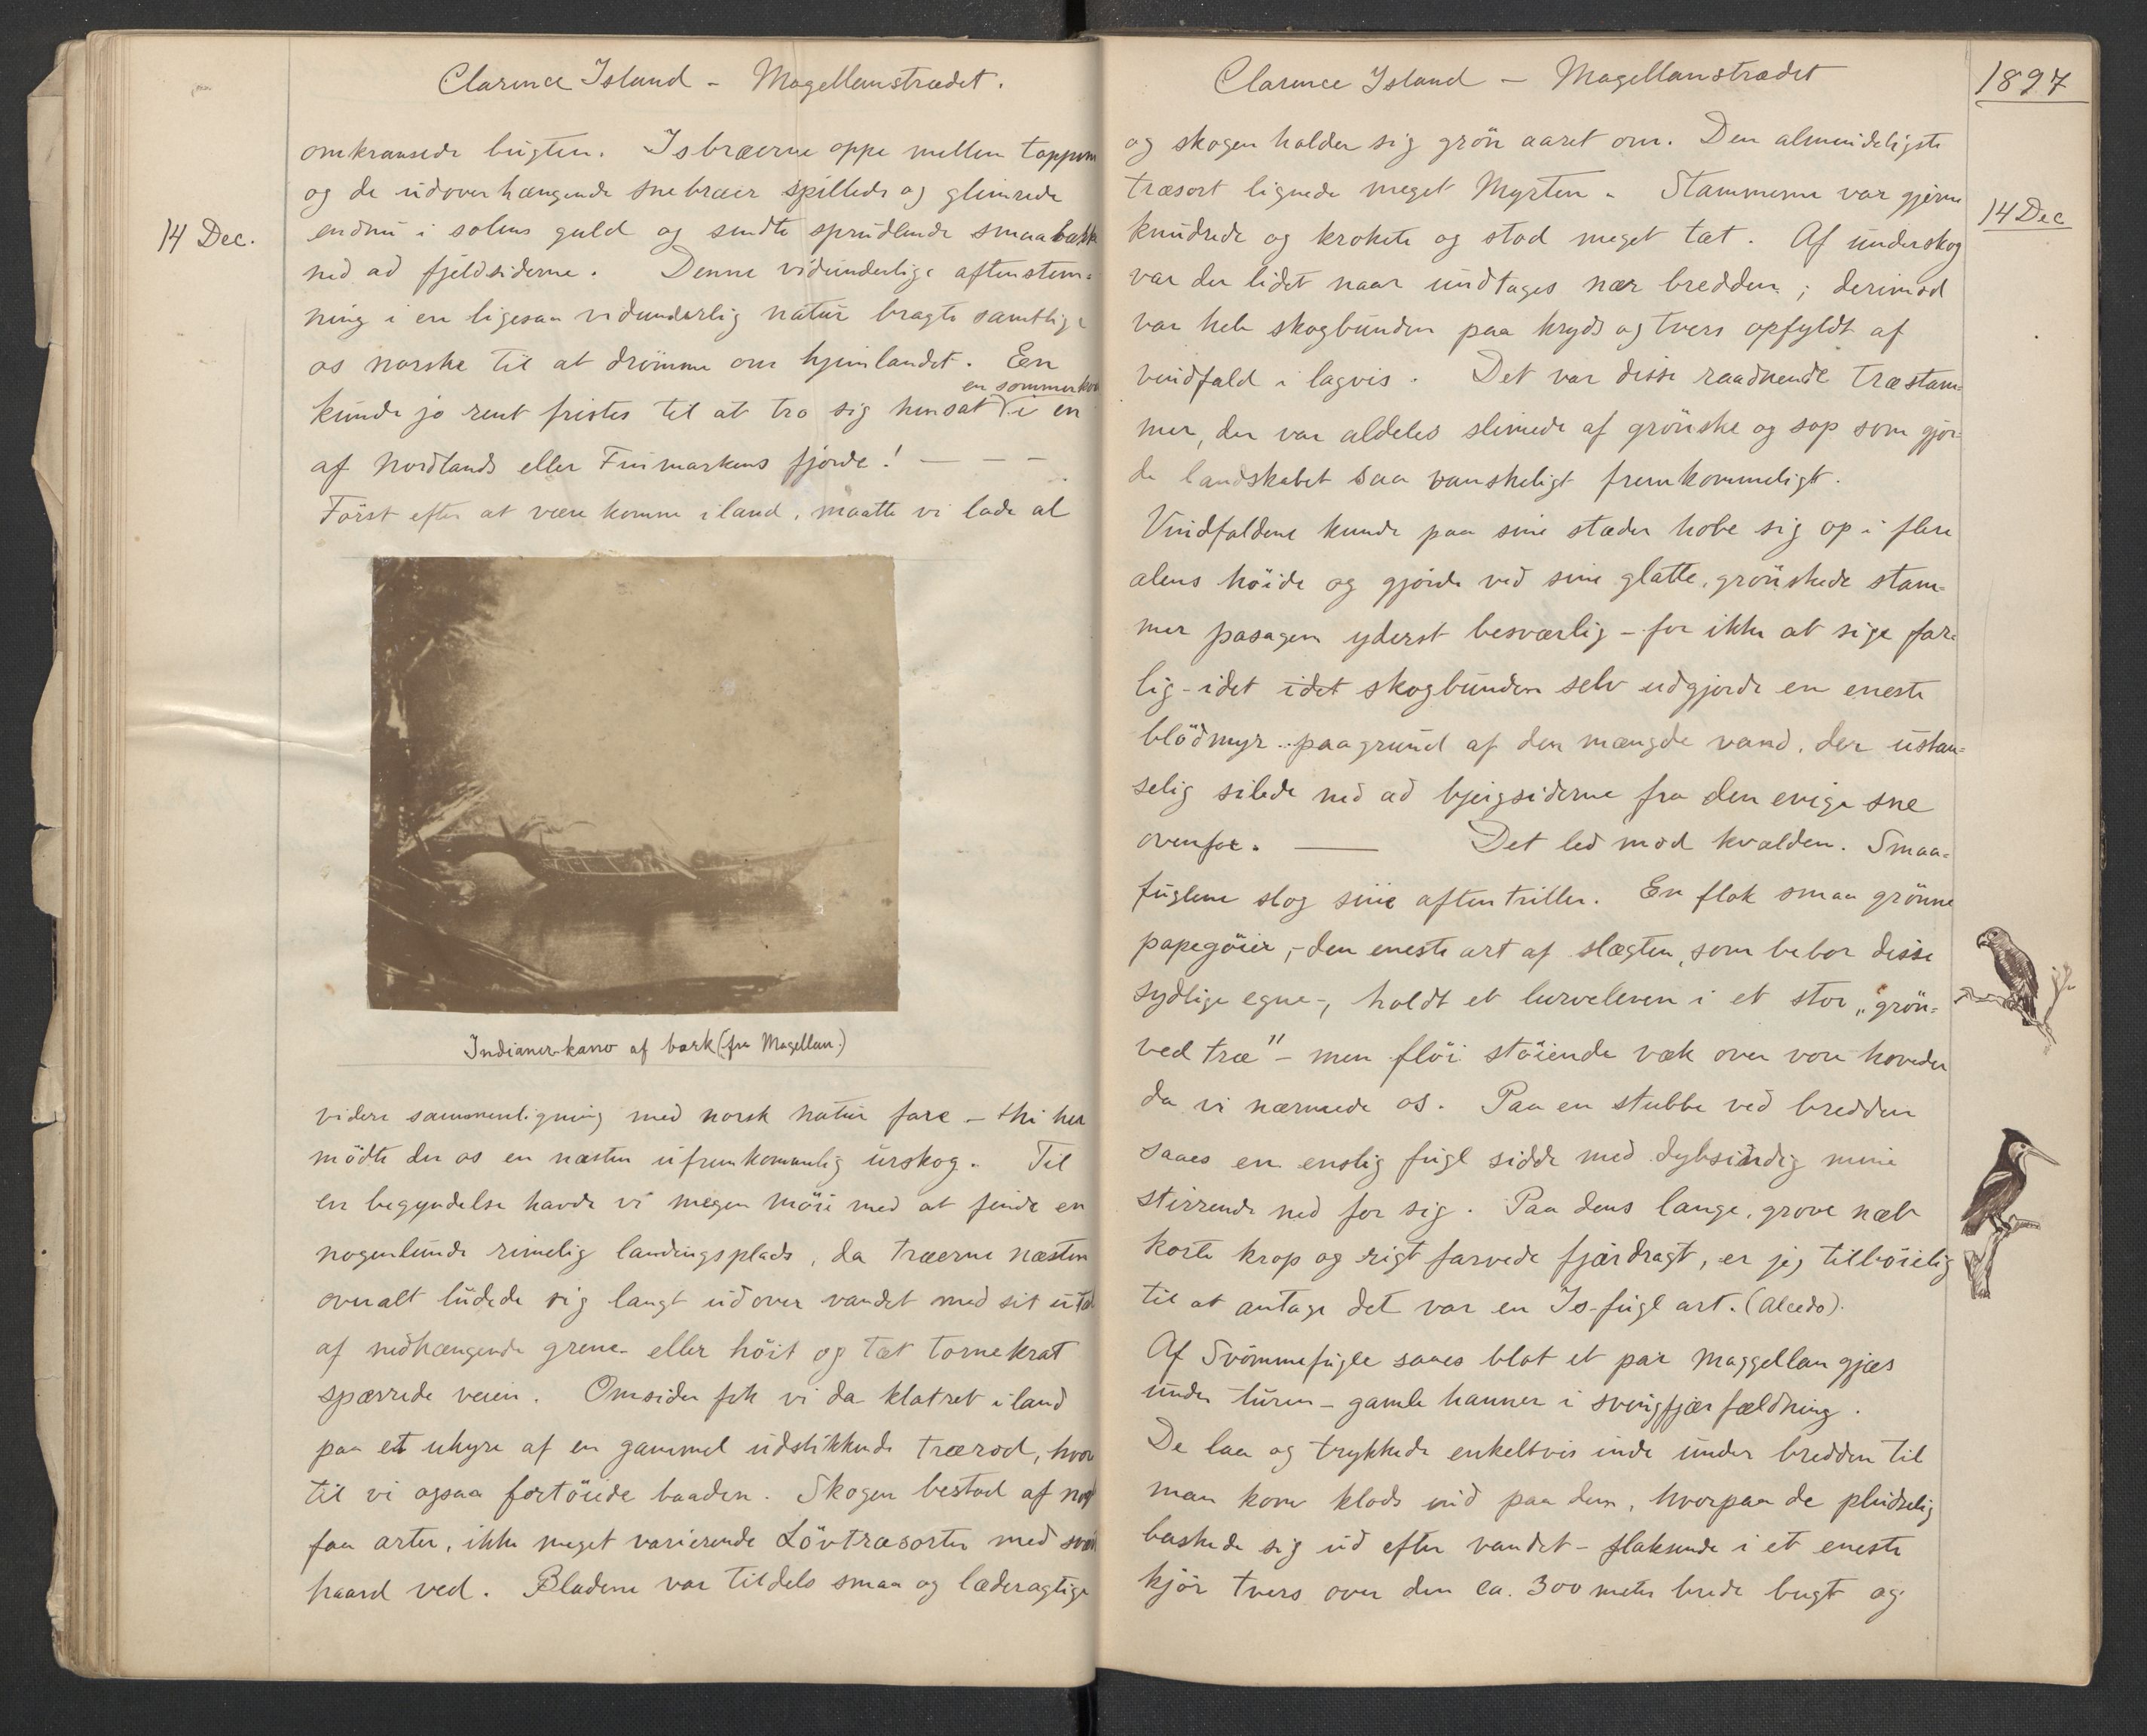 Clarence Island - Magellanstrædet.
omkransede bugten. Isbræerne oppe mellem toppene
og de udoverhængende snebræer spillede og glimrede
14 Dec.
endnu i solens guld og sendte sprudlende smaabække
ned ad fjeldsiderne. Denne vidunderlige aftenstem=
ning i en ligesaa vidunderlig natur bragte samtlige
os norske til at drømme om hjemlandet. En
en sommer
kunde jo rent fristes til at tro sig hensat i en
af Nordlands eller Finmarkens fjorde! — — —
Först efter at være komne iland, maatte vi lade al
Indianer-kano af bark (fra Magellan.)
videre sammenligning med norsk natur fare - thi her
mödte der os en næsten ufremkommelig urskog. Til
en begyndelse havde vi megen möie med at finde en
nogenlunde rimelig landingsplads, da træerne næsten
overalt ludede sig langt udover vandet med sit
af nedhængende grene - eller höit og tæt tornekrat
spærrede veien. Omsider fik vi da klatret iland
paa et uhyre af en gammel udstikkende trærod, hvor
til vi ogsaa fortöiede baaden. Skogen bestod af nogle
faa arter, ikke meget varierende Lövtræsorter med
haard ved. Bladene var tildels smaa og læderagtige
Clarence Island - Magellanstrædet
1897
og skogen holder sig grön aaret om. Den almindeligste
træsort lignede meget Myrten. Stammerne var gjerne
14 Dec
knudrede og krokete og stod meget tæt. Af underskog
var der lidet naar undtages nær bredden; derimod
var hele skogbunden paa kryds og tvers opfyldt af
vindfald i lagvis. Det var disse raadnende træstam=
mer, der var aldeles slimede af grönske og sop som gjor=
de landskabet saa vanskeligt fremkommeligt.
Vindfaldene kunde paa sine stæder hobe sig op i flere
alens höide og gjorde ved sine glatte, grönskede stam=
mer pasagen yderst besværlig - for ikke at sige far=
lig - idet idet skogbunden selv udgjorde en eneste
blödmyr paagrund af den mængde vand, der ustan=
selig silede ned ad bjergsiderne fra den evige sne
ovenfor. — Det led mod kvælden. Smaa=
fuglene slog sine aftentriller. En flok smaa grönne
papegöier, - den eneste art af slægten, som bebor disse
sydlige egne -, holdt et lurveleven i et stor „grön=
ved træ" - men flöi stöiende væk over vore hoveder
da vi nærmede os. Paa en stubbe ved bredden
saaes en enslig fugl sidde med dybsindig mine
stirrende ned for sig. Paa dens lange, grove næb
korte krop og rigt farvede fjærdragt, er jeg tilböielig
til at antage det var en Is-fugl art. (Alcedo).
Af Svömmefugle saaes blot et par Maggellan gjæs
under turen - gamle hanner i svingfjær fældning.
De laa og trykkede enkeltvis inde under bredden til
man kom klods ind paa dem, hvorpaa de pludselig
baskede sig ud efter vandet - flaksende i et eneste
kjör tvers over den ca. 300 meter brede bugt og